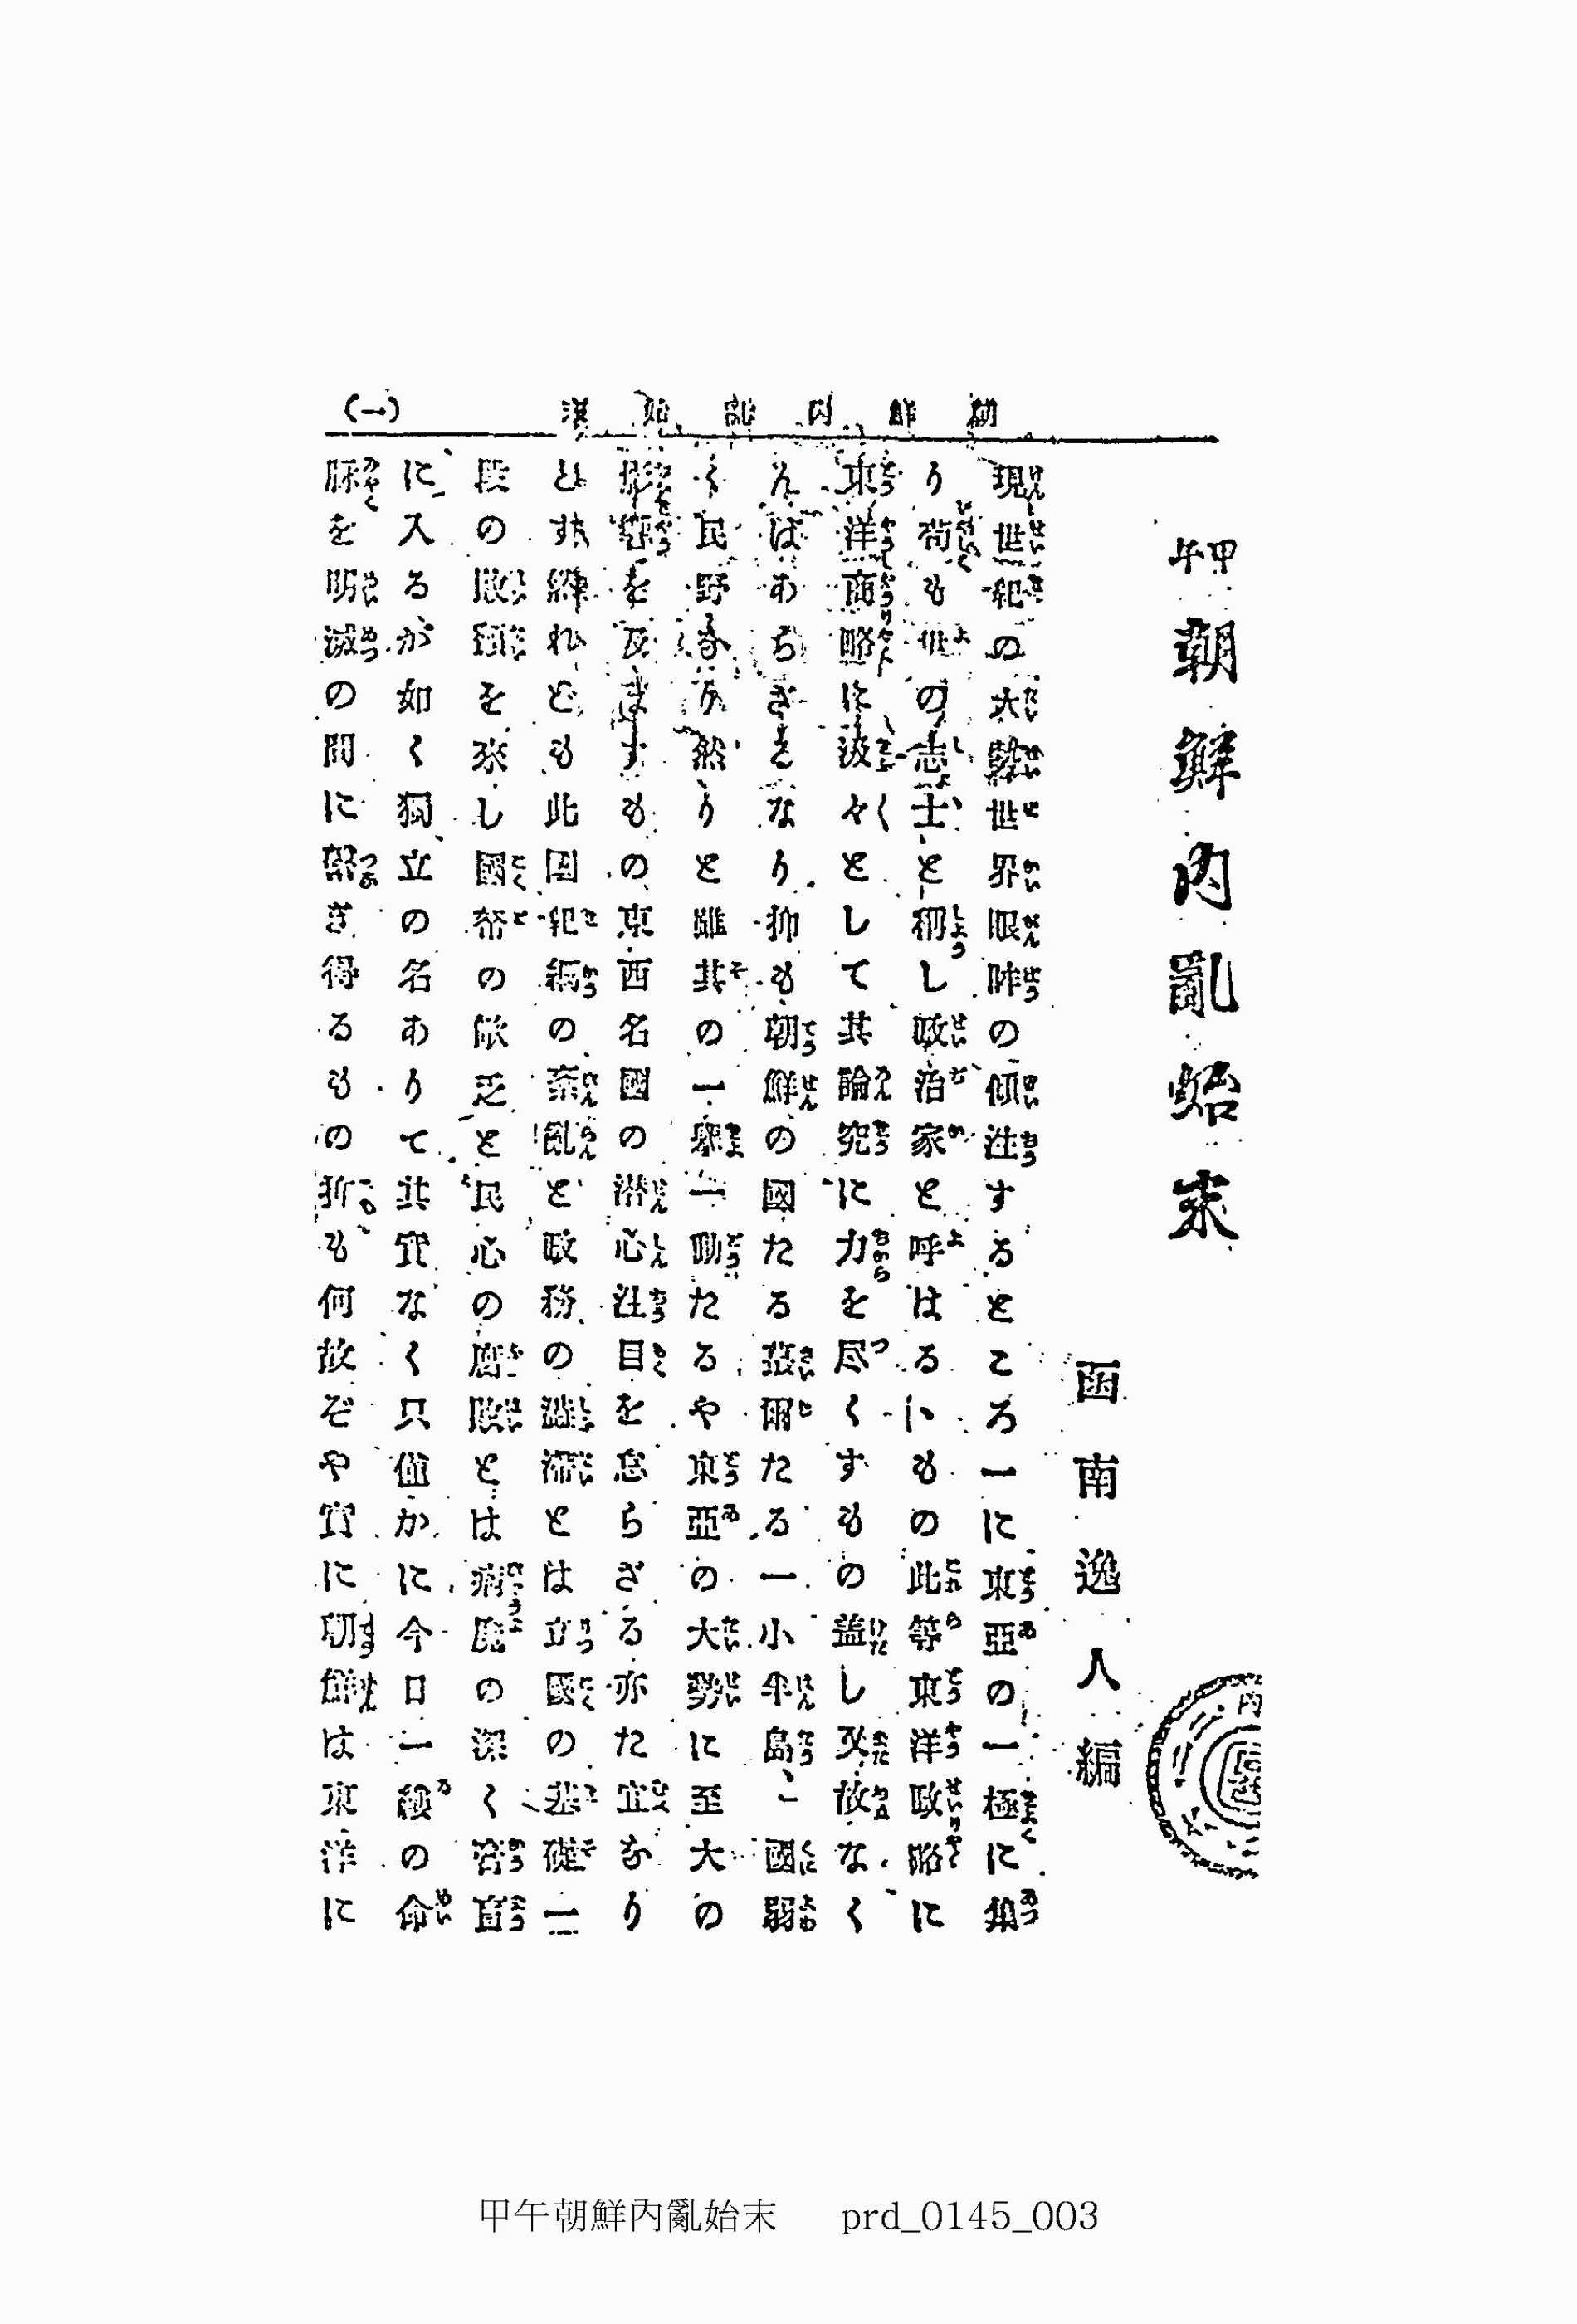 朝鮮内亂始末
(一)
甲午朝鮮内亂始末
函南逸人編
現世紀の大勢世界眼眸の傾注するところ一に東亞の一極に集
り苟も世の志士と稱し政治家と呼はるゝもの此等東洋政略に
東洋商略に汲々として其論究に力を尽くすもの盖し又故なく
んばあらざるなり抑も朝鮮の國たる蕞爾たる一小半島、國弱
く民野なり然りと雖其の一擧一動たるや東亞の大勢に至大の
影響を及ぼすもの東西名國の潜心注目を怠らざる亦た宜なり
とす雖れども此国紀綱の紊亂と政務の澁滞とは立國の基礎一
段の敗頽を來し國帑の缺乏と民心の腐敗とは病魔の深く膏肓
に入るが如く獨立の名ありて其實なく只僅かに今日一縷の命
脉を明滅の間に繋ぎ得るもの抑も何故ぞや實に朝鮮は東洋に
甲午朝鮮内亂始末 prd_0145_003